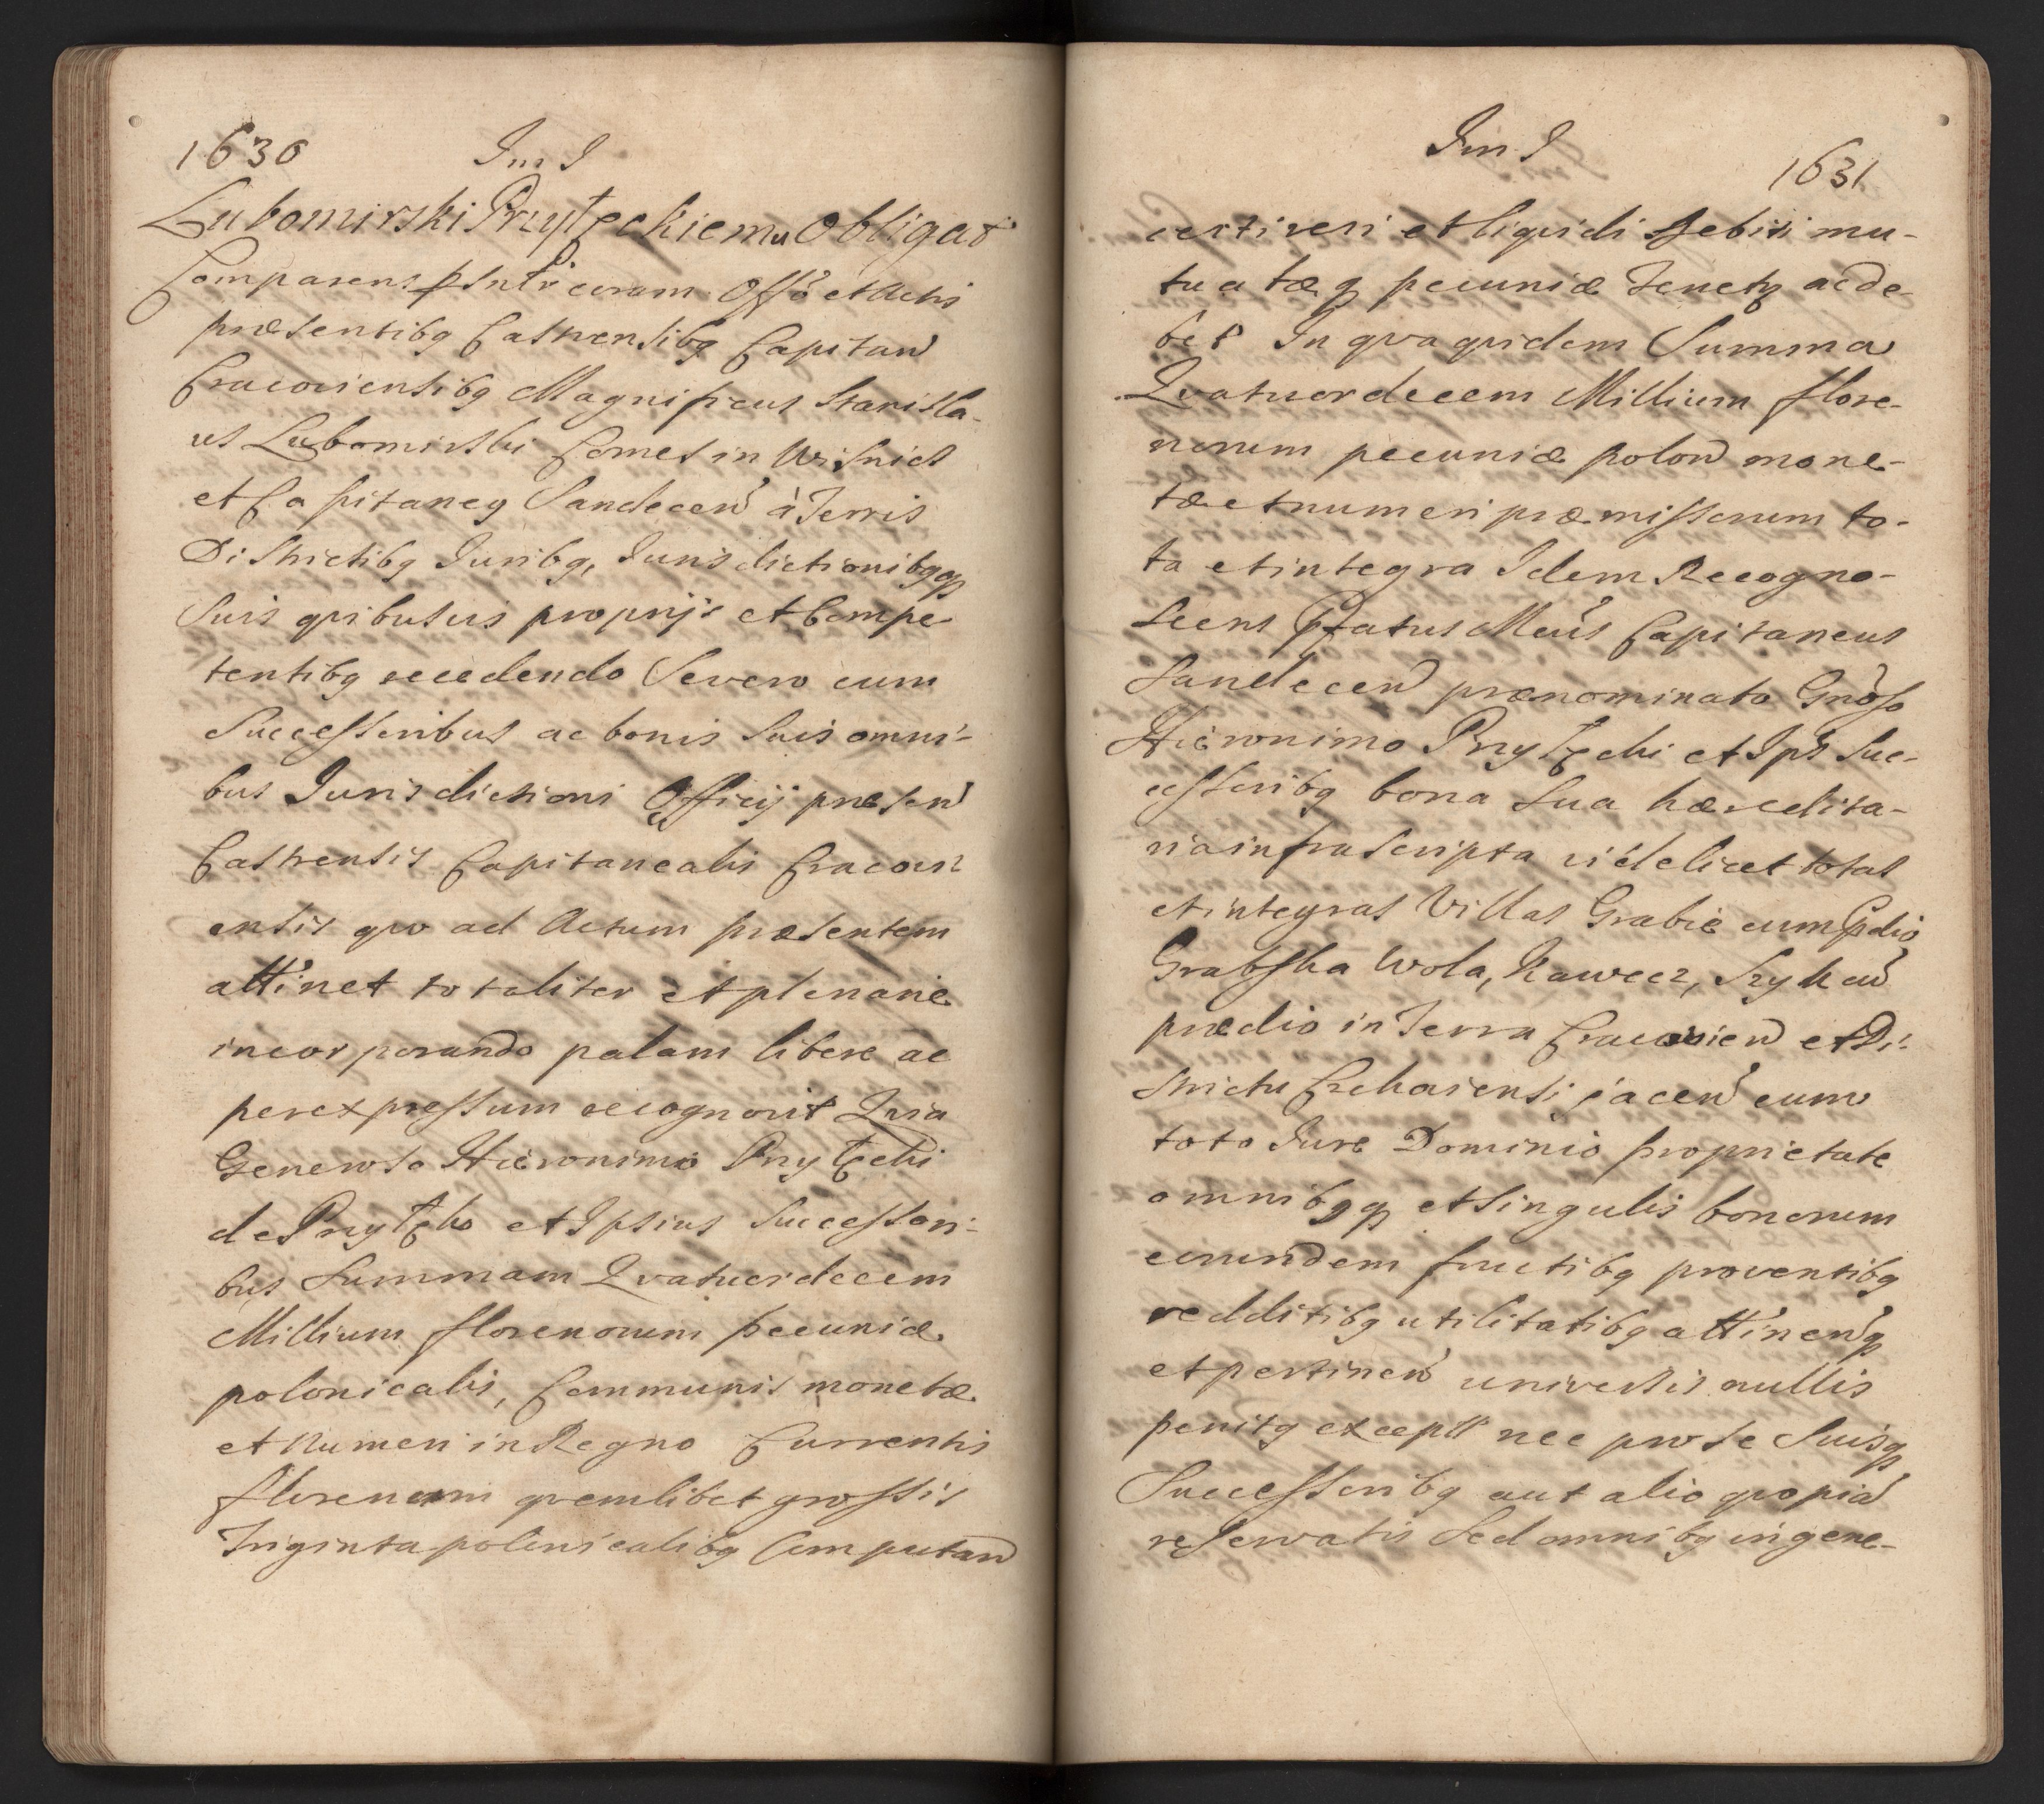 1630 Jm J
Lubomirski Przyteckiemu Obligat
Comparens psntr coram Offo et Actis
præsentibg Castrensibg Capitan
Cracoviensibg Magnificus Stanisla-
us Lubomirski Comes in Wisnicz
et Capitaneg Sandecen à Terris
Districtibg Juribg, Jurisdictionibgq
Suis quibusvis proprijs et Compe
tentibg recedendo Severo cum
Successoribus ac bonis Suis omni-
bus Jurisdictioni Officij præsen
Castrensis Capitanealis Cracovi
ensis quo ad Actum præsentem
attinet totaliter et plenarie
incorporando palam libere ac
per expressum recognovit Quia
Generoso Hieronimo Przytecki
de Przytyko et Ipsius Successori-
bus Summam Quatuordecem
Millium florenorum pecuniæ
polonicalis, Communis monetæ
et Numeri in Regno Currentis
florenum quemlibet grossis
Triginta polonicalibg Computan
Jm J 1631
certi veri et liquidi debiti mu-
tuatæq pecuniæ Tenetq ac de
bet In qva quidem Summa
Qvatuordecem Millium flore-
norum pecuniæ polon mone-
tæ et numeri præmissorum to-
ta et integra Idem Recogno-
scens Pfatus Mcus Capitaneus
Sandecen prænominato Gnoso
Hieronimo Przytecki et Ips Suc-
cessoribg bona Sua hæredita-
ria infrascripta videlicet totas
et integras Villas Grabie cum Pdio
Grabska Wola, Kawecz, Szyk cum
prædio in Terra Cracovien et Di-
strictu Czchoviensi jacen cum
toto Jure Dominio proprietate
omnibgq et singulis bonorum
eorundem fructibg proventibg
redditibg utilitatibg attinenq
et pertinen universis nullis
penitg exceptis nec pro se Suisq
Successoribg aut alio quopiam
reservatis Sed omnibg in gene-